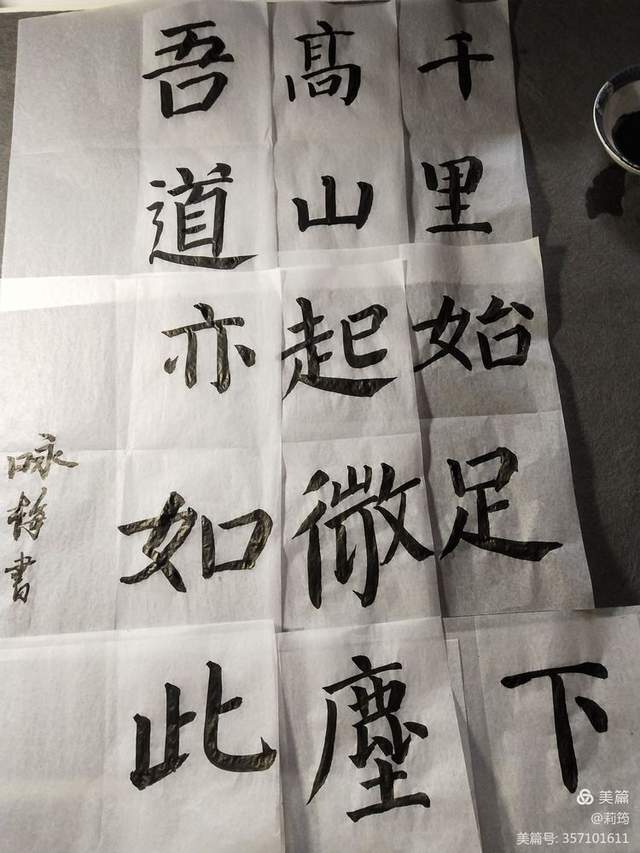 千里始足下
高山起微塵
吾道亦如此
咏梅書
美篇
@莉筠
美篇号: 357101611